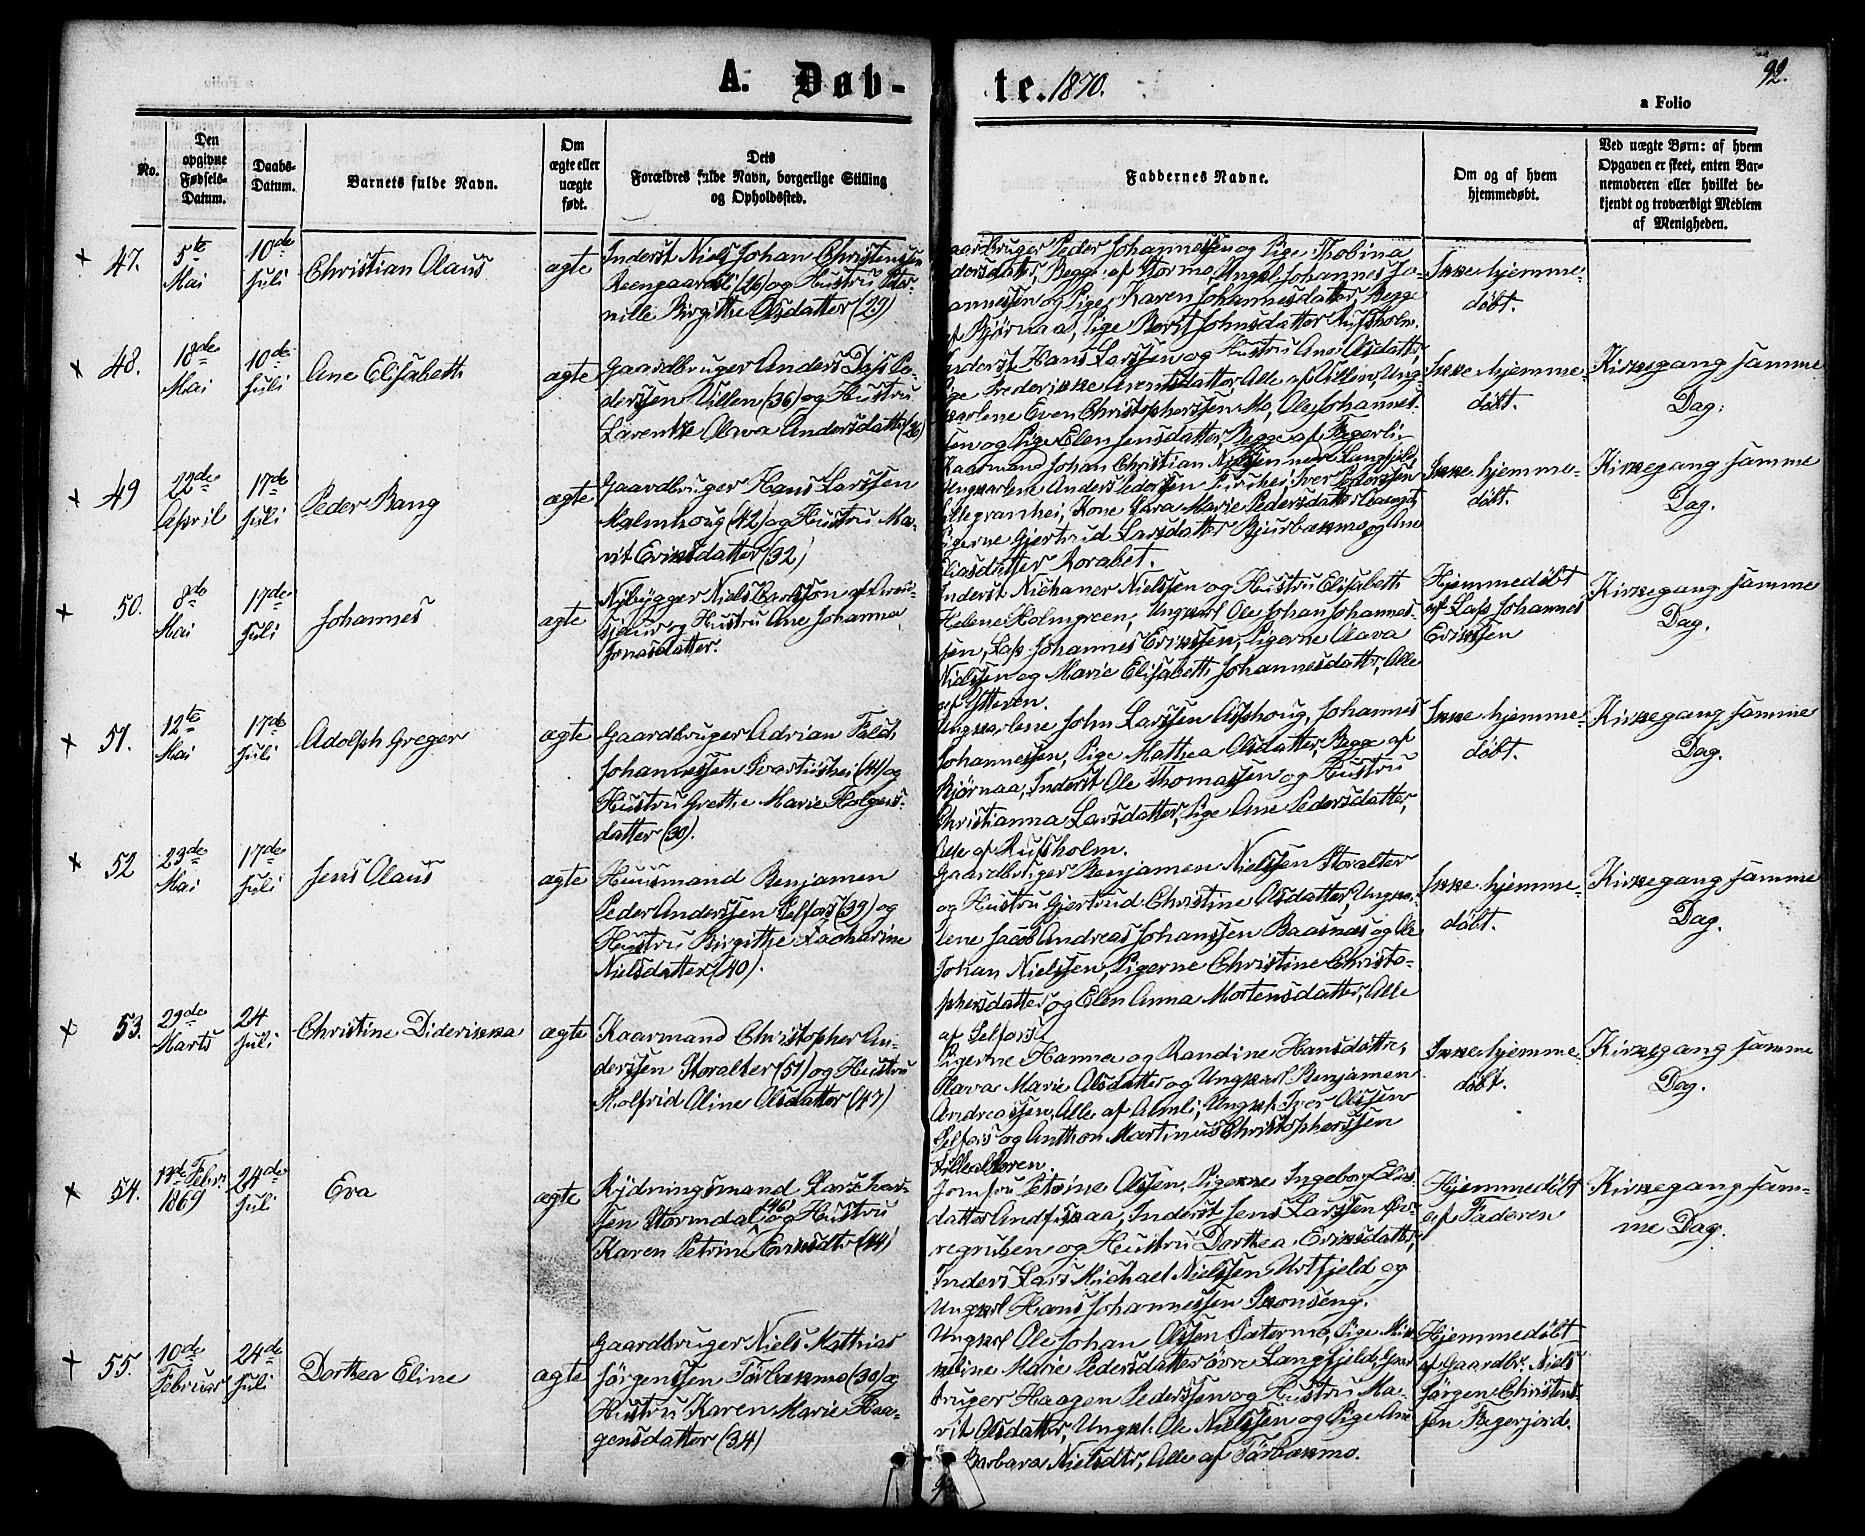 A. Døb-
te. 1870.
92.
a Folio
No.
Den
opgivne
Fødsels-
Datum.
Daabs-
Datum.
Barnets fulde Navn.
Om
ægte eller
uægte
født.
Dets
Forældres fulde Navn, borgerlige Stilling
og Opholdssted.
Faddernes Navne.
Om og af hvem
hjemmedøbt.
Ved uægte Børn: af hvem
Opgaven er skeet, enten Bar-
nemoderen eller hvilket be-
kjendt og troværdigt Medlem
af Menigheden.
47.
5te
Mai
10de
Juli
Christian Olaus
ægte
Inderst Niels Johan Christenssen
Reengaardli (26) og Hustru Per-
nille Birgithe Olsdatter (29)
Gaardbruger Peder Johannessen og Pige Thobina
Pedersdatter, Begge af Stormo, Ungkl Johannes Jo-
hannessen og Pige Karen Johannesdatter, Begge
af Bjørnaa, Pige Berit Johnsdatter Rufsholm.
Ikke hjemme-
døbt.
48.
18de
Mai
10de
Juli
Ane Elisabeth
ægte
Gaardbruger Anders Dass Pe-
derssen Villen (36) og Hustru
Larentze Olava Andersdatter (26)
Inderst Hans Larssen og Hustru Ane Olsdatter,
Pige Frederikke Arentsdatter, Alle af Villen, Ung-
karlene Even Christopherssen Mo, Ole Johannes-
sen og Pige Elen Jensdatter, Begge af Fagerli.
Ikke hjemme-
døbt.
Kirkegang samme
Dag.
49
22de
April
17de
Juli
Peder Bang
ægte
Gaardbruger Hans Larssen
Malmhoug (42) og Hustru Ma-
rit Eriksdatter (32)
Kaarmand Johan Christian Nielssen nedre Langfjeld,
Ungkarlene Anders Pederssen, Iver Pederssen
Lillegranhei, Kone Sara Marie Pedersdatter
Pigerne Gjertrud Larsdatter Bjurbækmo og Ane
Eliasdatter Rorabet.
Ikke hjemme-
døbt.
Kirkegang samme
Dag.
50.
8de
Mai
17de
Juli
Johannes
ægte
Nybygger Niels Carlsson af
og Hustru Ane Johanna
Jonasdatter.
Inderst Nichaner Nielssen og Hustru Elisabeth
Helene Holmgreen, Ungkarl Ole Johan Johannes-
sen, Lap Johannes Erikssen, Pigerne Olava
Nielssen og Marie Elisabeth Johannesdatter, Alle
af Ytteren.
Hjemmedøbt
af Lap Johannes
Erikssen
Kirkegang samme
Dag.
51.
12te
Mai
17de
Juli
Adolph Greger
ægte
Gaardbruger Adrian Falch
Johannessen Svartishei (41) og
Hustru Grethe Marie Holgers-
datter (30).
Ungkarlene John Larssen Asphoug, Johannes
Johannessen, Pige Mathea Olsdatter, Begge af
Bjørnaa, Inderst Ole Thomassen og Hustru
Christianna Larsdatter, Pige Ane Pedersdatter,
Alle af Rufsholm.
Ikke hjemme-
døbt.
Kirkegang samme
Dag.
52
23de
Mai
17de
Juli
Jens Olaus
ægte
Huusmand Benjamen
Peder Anderssen Selfors (39) og
Hustru Birgithe Zacharine
Nielsdatter (40).
Gaardbruger Benjamen Nielssen Storalter
og Hustru Gjertrud Christine Olsdatter, Ungkar-
lene Jacob Andreas Johanssen Baasnæs og Ole
Johan Nielssen, Pigerne Christine Christo-
phersdatter og Elen Anna Mortensdatter, Alle
af Selfors.
Ikke hjemme-
døbt.
Kirkegang samme
Dag.
53.
29de
Marts
24
Juli
Christine Diderikka
ægte
Kaarmand Christopher An-
derssen Storalter (51) og Hustru
Rolfrid Oline Olsdatter (47)
Pigerne Hanna og Randine Hansdøttre,
Olava Marie Olsdatter og Ungkarl Benjamen
Andreassen, Alle af Almli, Ungk. Iver Olssen
Selfors og Anthon Martinus Christopherssen
Lillealteren.
Ikke hjemme-
døbt.
Kirkegang samme
Dag.
54.
Febr.
1869
24de
Juli
Eva
ægte
Rydningsmand Lars Ivar-
sen Stormdal (46) og Hustru
Karen Petrine Eriksdtr (44)
Jomfru Petrine Olssen, Pigerne Ingeborg Elias-
datter Andfiskaa, Inderst Jens Larssen
regruben og Hustru Dorthea Eriksdatter,
Inders Lars Michael Nielssen Urtfjeld og
Ungkarl Hans Johannessen Skonseng.
Hjemmedøbt
af Faderen
Kirkegang sam-
me Dag.
55.
10de
Februar
24de
Juli
Dorthea Eline
ægte
Gaardbruger Niels Mathias
Jørgenssen Tørbækmo (30) og
Hustru Karen Marie Haa-
gensdatter (34)
Ungkarl Ole Johan Olssen Sætermo, Pige Mik-
keline Marie Pedersdatter øvre Langfjeld, Gaar-
bruger Haagen Pederssen og Hustru Ma-
rit Olsdatter, Ungkl. Ole Nielssen og Pige Ane
Barbara Nielsdtr, Alle af Tørbækmo.
Hjemmedøbt
af Gaardbr. Niels
Jørgen Christens-
sen Fagerjord.